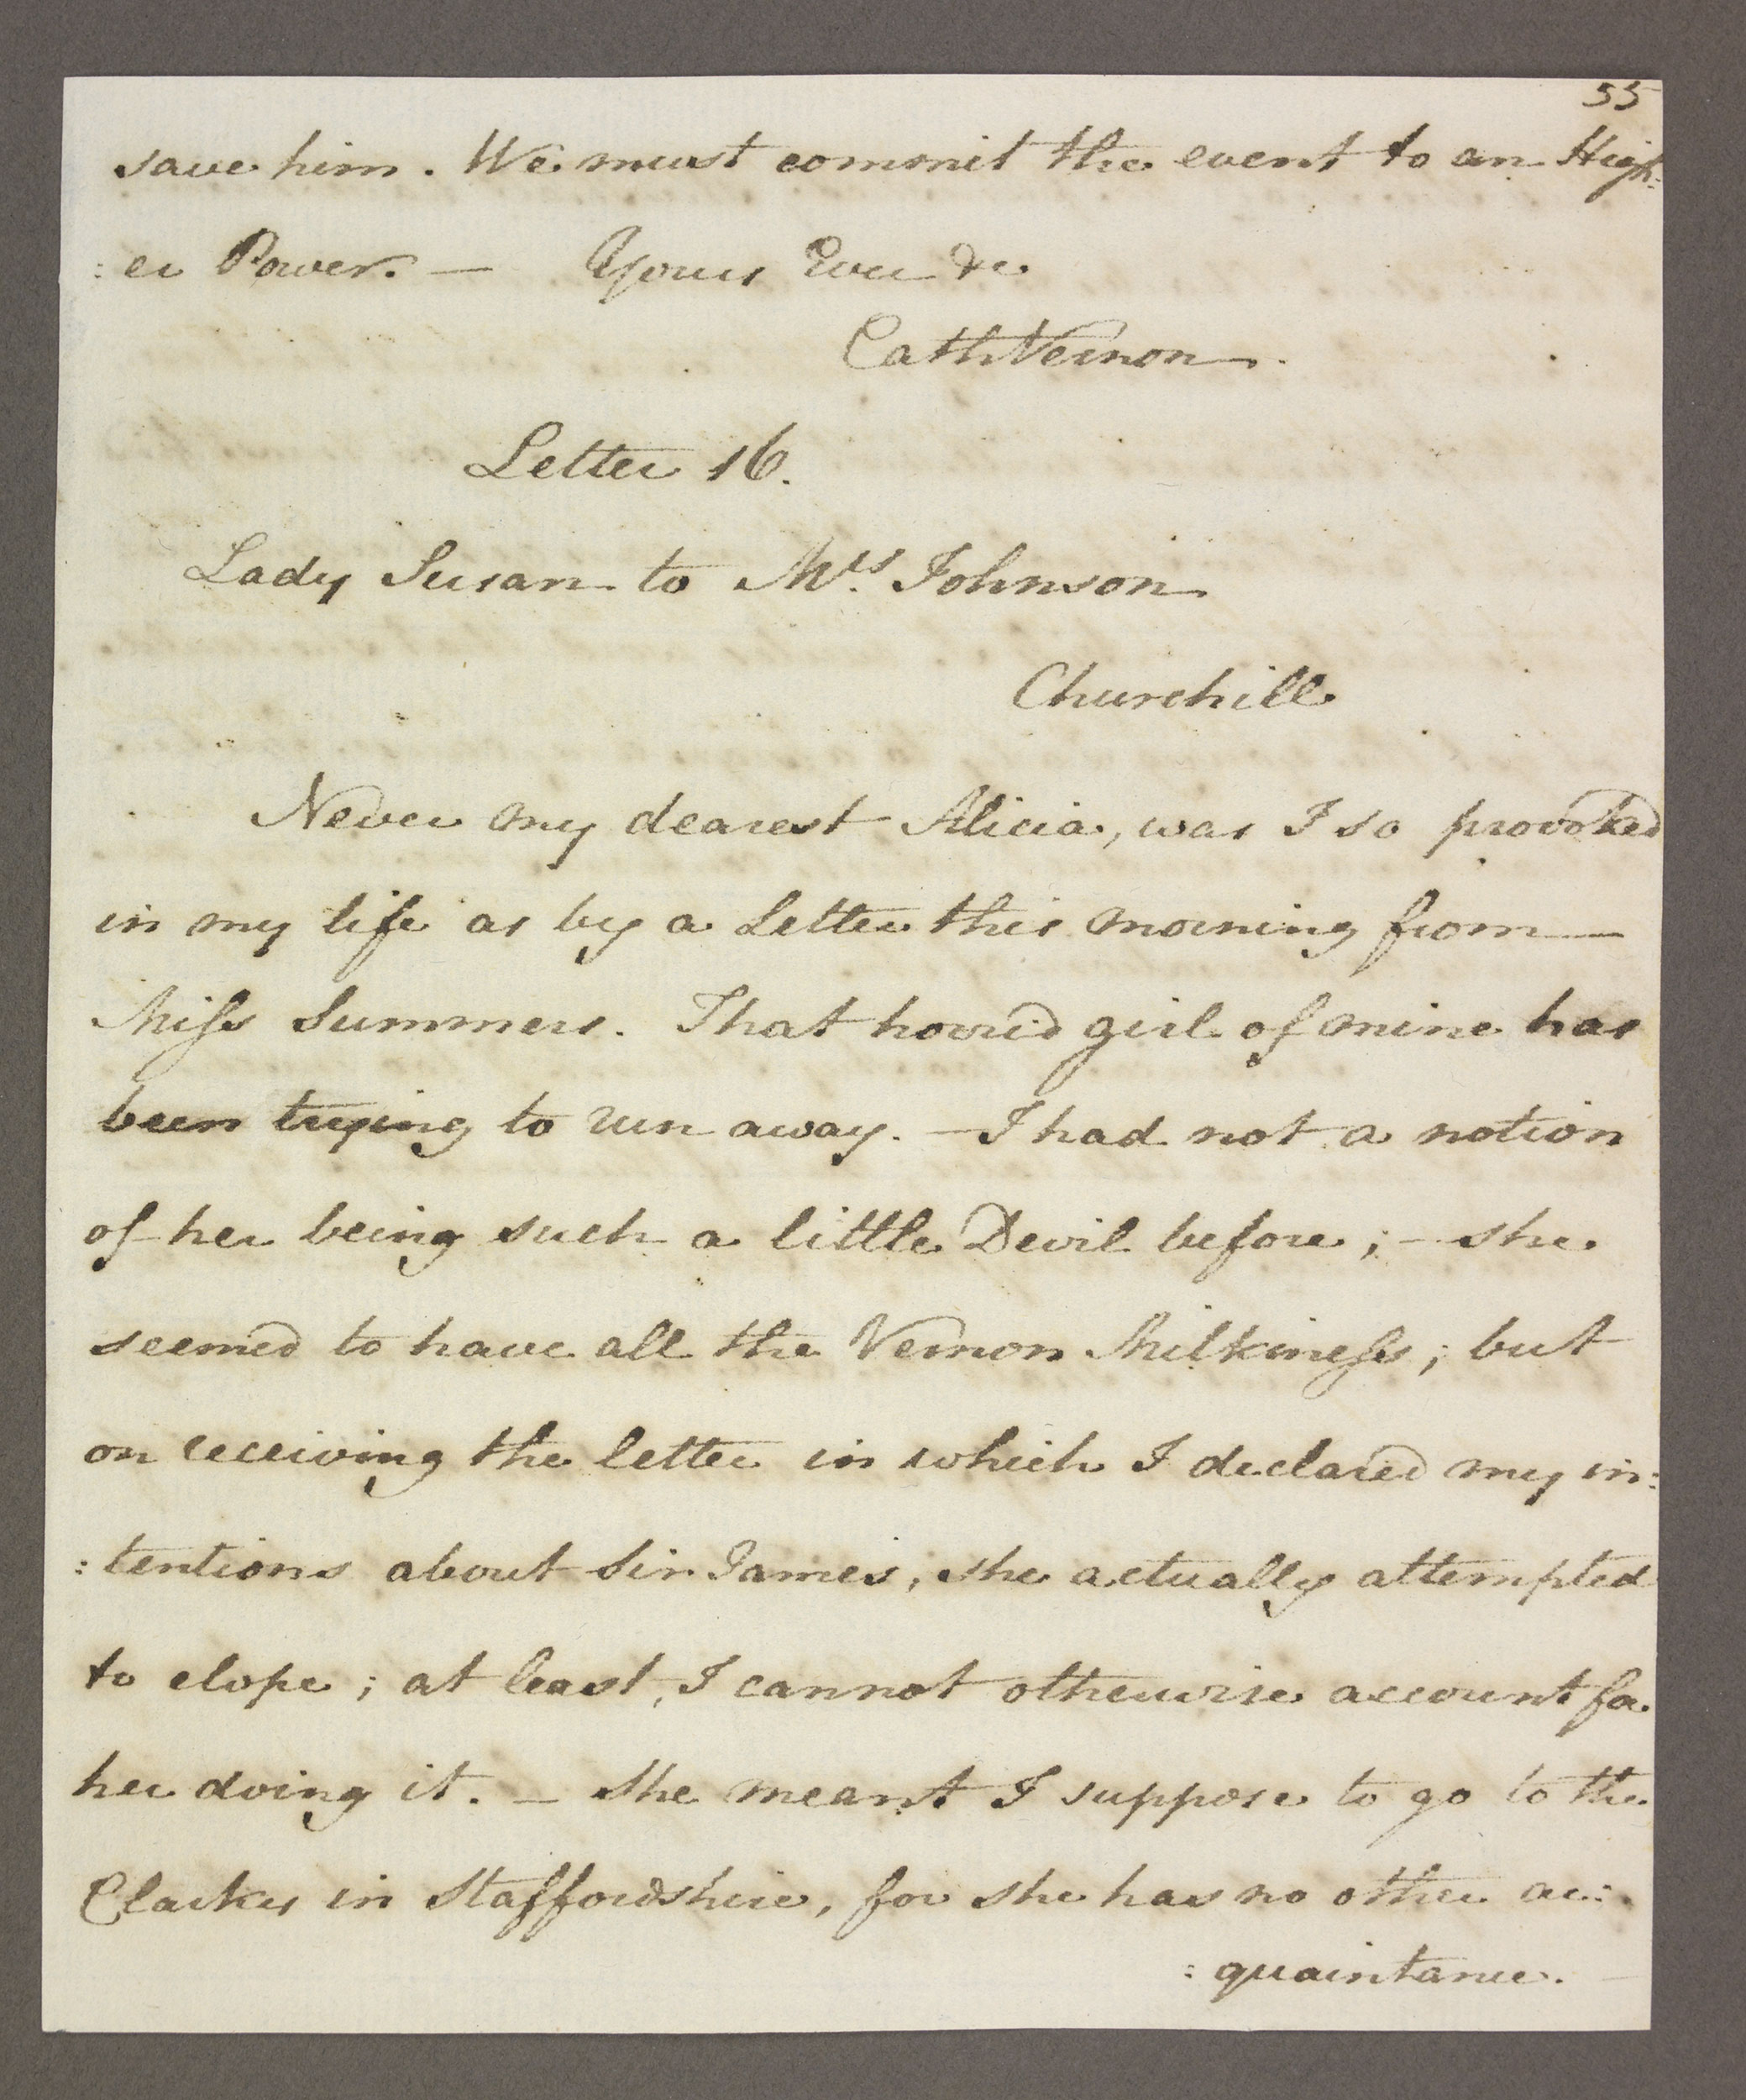 55
save him. We must commit the event to an High:
:er Power. — Yours Ever &c
CathVernon.
Letter 16.
Lady Susan to Mrs. Johnson
Churchill
Never my dearest Alicia, was I so provoked
in my life as by a Letter this morning from —
Miſs Summers. That horrid girl of mine has
been trying to run away. — I had not a notion
of her being such a little Devil before; — she
seemed to have all the Vernon Milkineſs; but
on receiving the letter in which I declared my in:
:tentions about Sir James, she actually attempted
to elope; at least, I cannot otherwise account for
her doing it. — She meant I suppose to go to the
Clarkes in Staffordshire, for she has no other ac:
:quaintance.